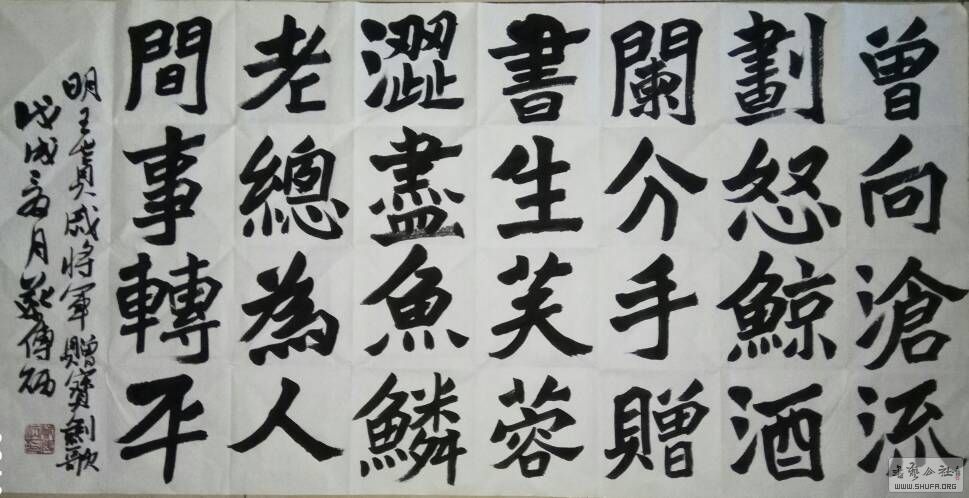 曾向滄流
劃怒鯨酒
闌分手贈
書生芙蓉
澀盡魚鱗
老總為人
間事轉平
明王世貞戚將軍贈寶劍歌
戊戌
月
傳炳
WWW.SHUFA.ORG